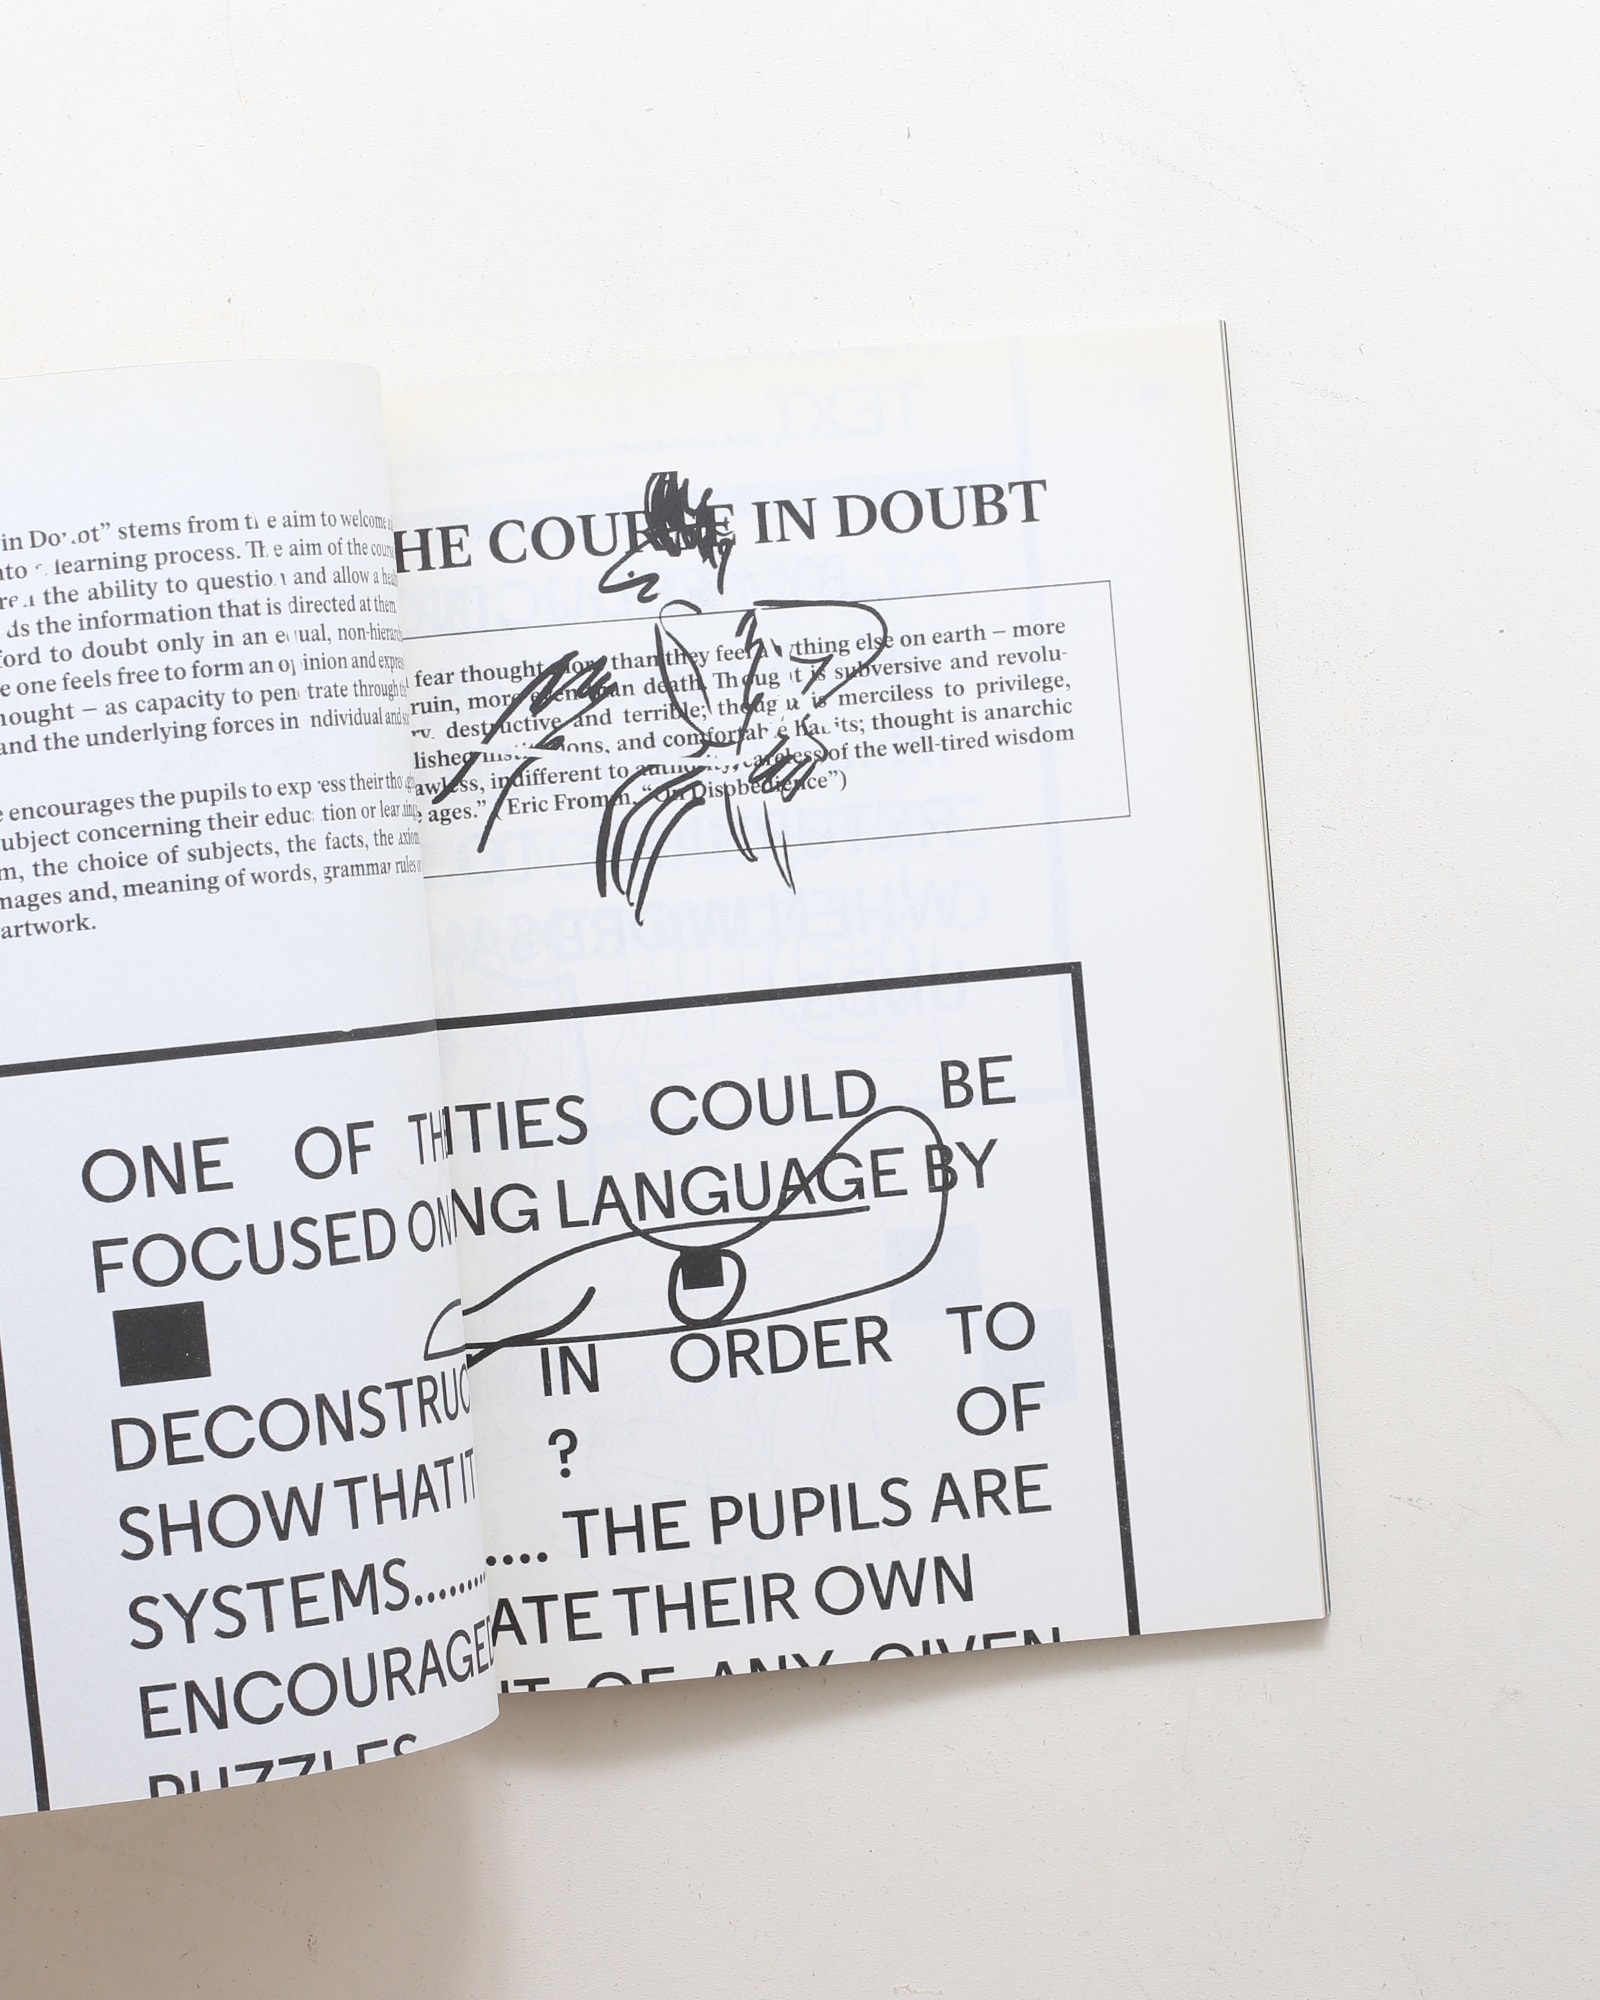 in Do ot” stems from t e aim to welcome
nto learning process. Th e aim of the cour
the ability to questio and allow a hea
ds the information that is directed at them
ford to doubt only in an e ual, non-hierarc
e one feels free to form an o inion and expres
hought – as capacity to pen trate through
and the underlying forces in ndividual and
e encourages the pupils to exp ess their tho
ubject concerning their educ tion or lear
m, the choice of subjects, the facts, the axiom
mages and, meaning of words, grammar rules
artwork.
HE COURSE IN DOUBT
fear thought more than they feel thing else on earth – more
ruin, more even than death. Thoug t is subversive and revolu-
ry destructive and terrible; thoug is merciless to privilege,
lished insti ions, and comfortab e ha its; thought is anarchic
awless, indifferent to authority, careless of the well-tired wisdom
e ages.” ( Eric Fromm, “On Disobedience”)
ONE OF TH
FOCUSED ON
DECONSTRUC
SHOW THAT IT
SYSTEMS.........
ENCOURAGED
PUZZLES
ITIES COULD BE
NG LANGUAGE BY
IN ORDER TO
? OF
.... THE PUPILS ARE
ATE THEIR OWN
T OF ANY GIVEN
TEXT